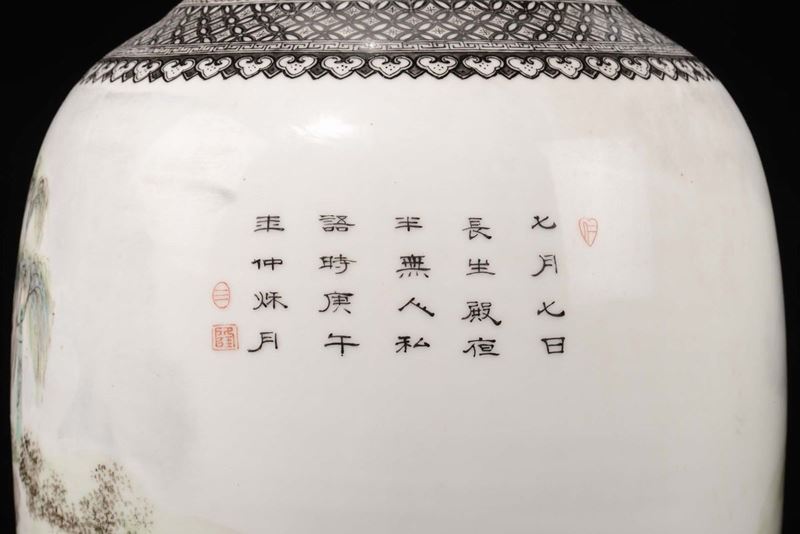 七月七日
長生殿夜
半無人私
語時庚午
年仲秌月